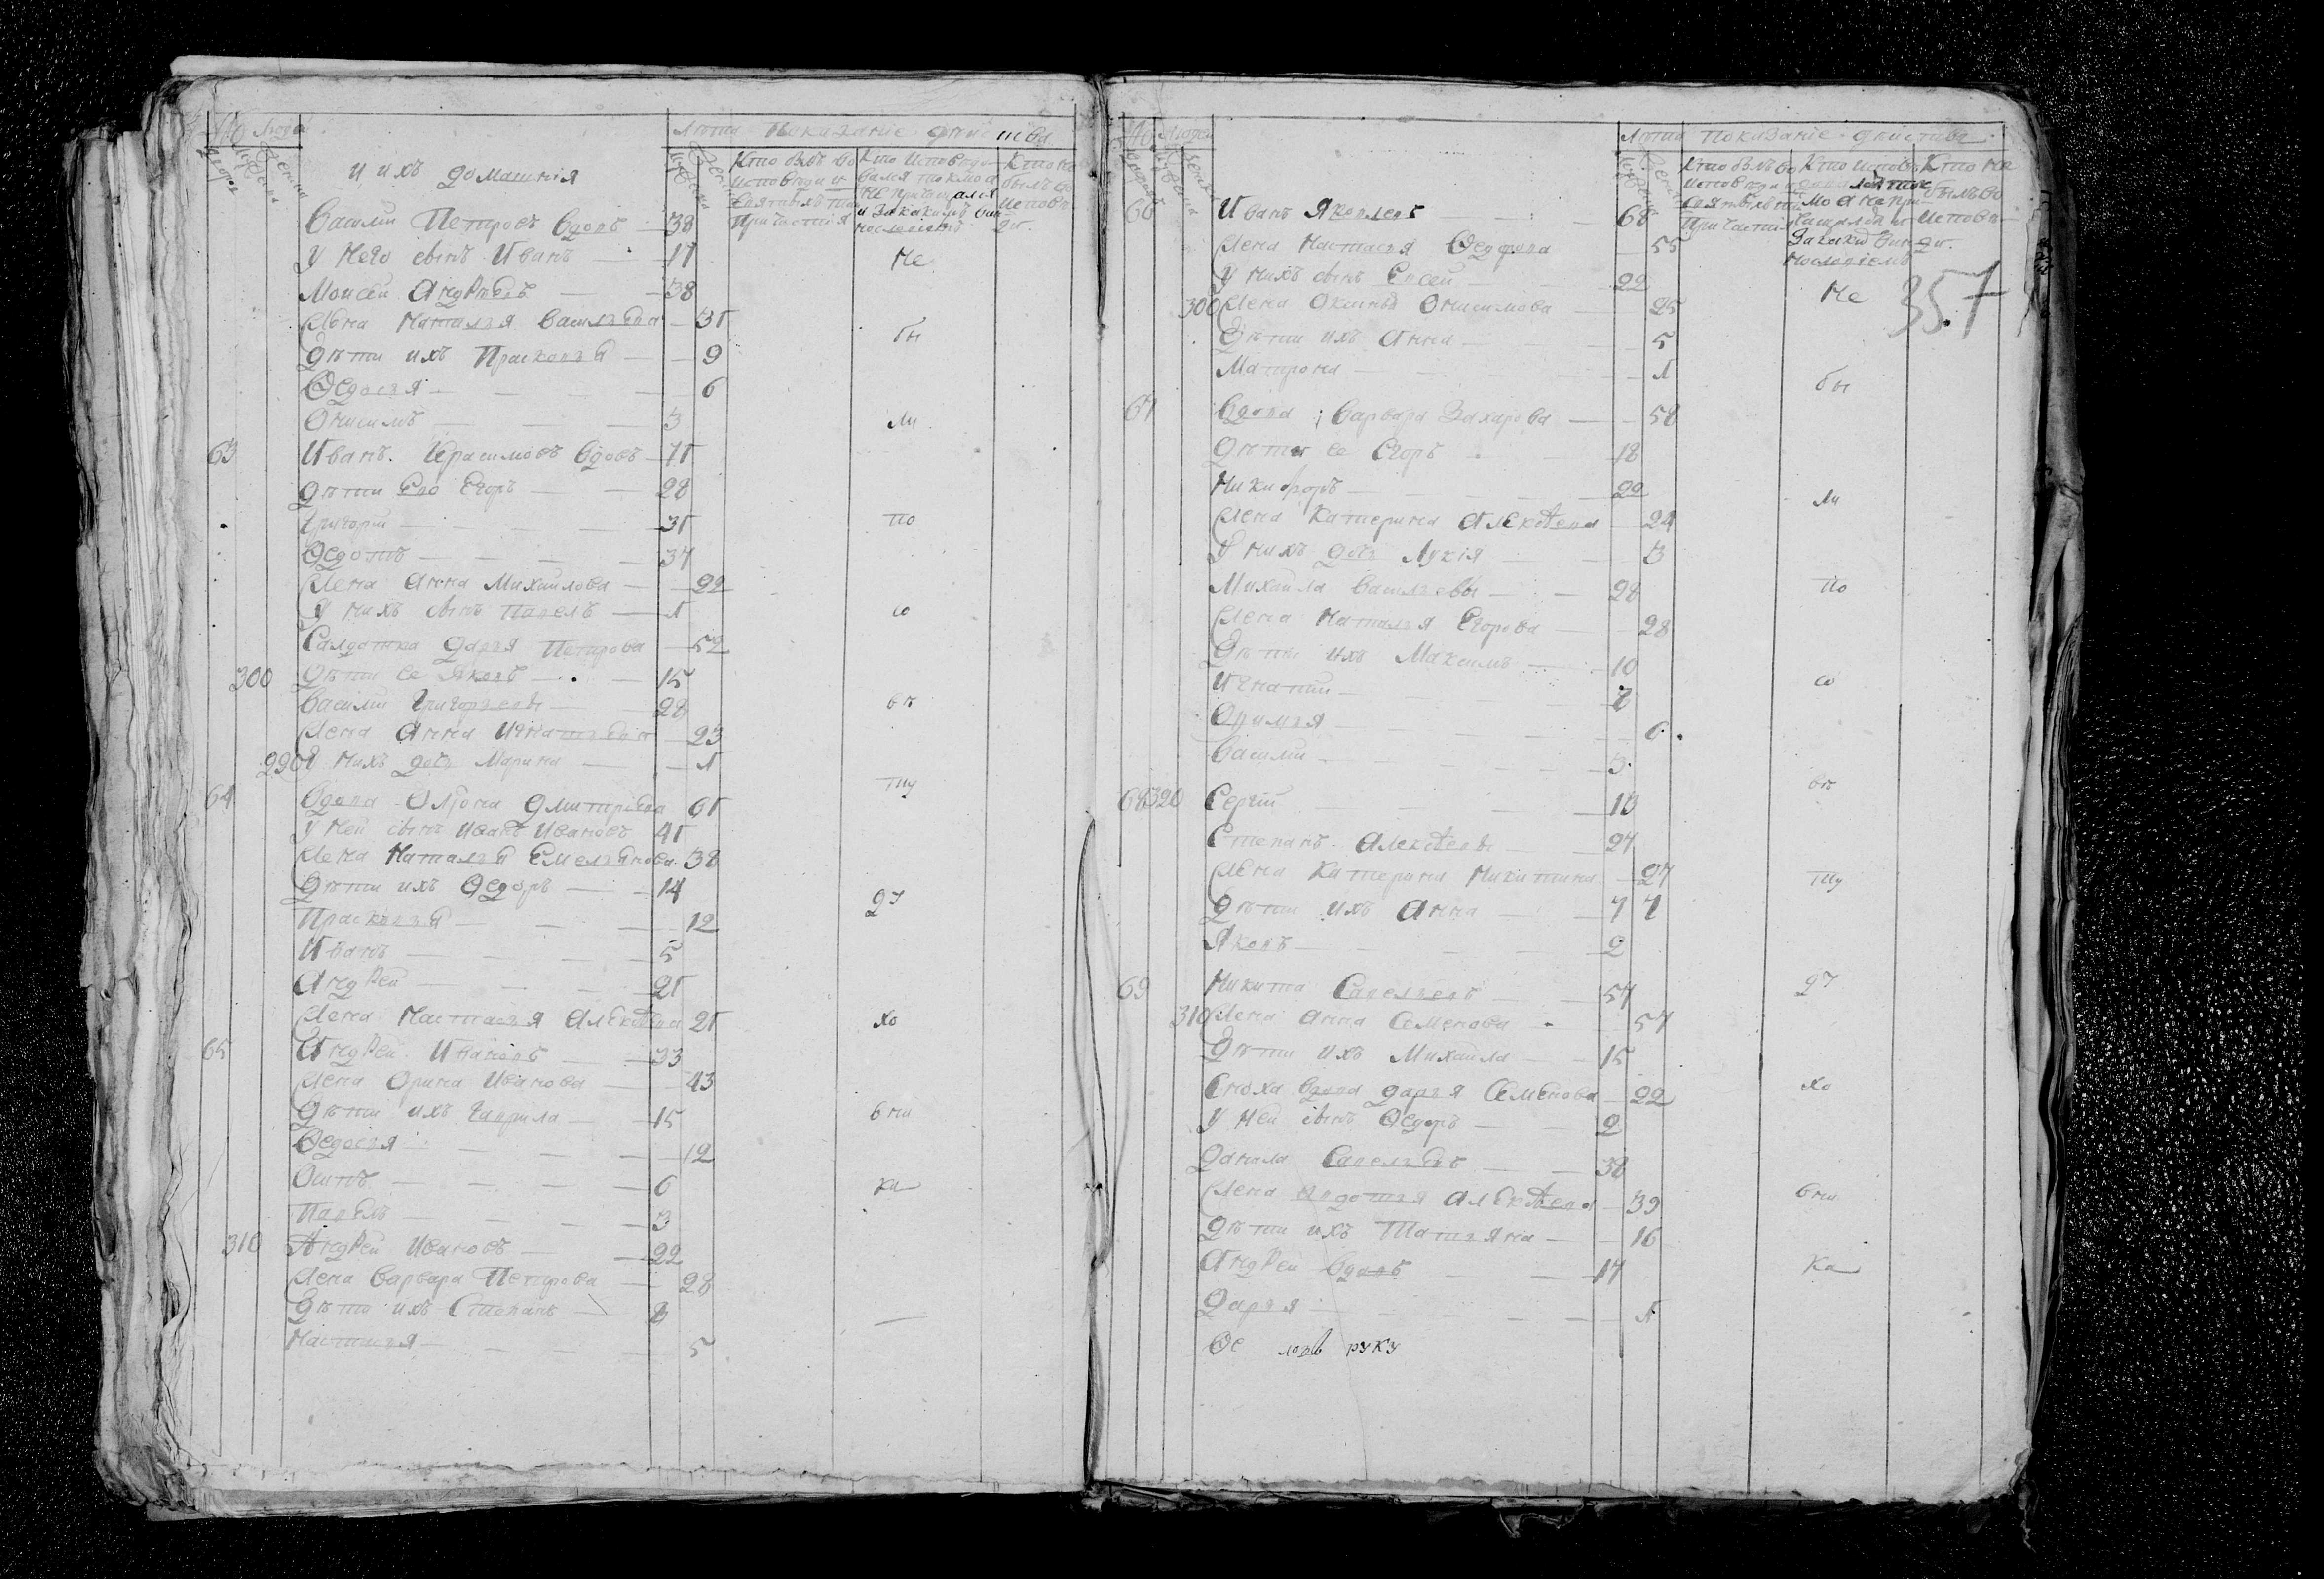 No Людей Лѣта Показаніе дѣйства
дворов Мужеска Женска
и ихъ домашнія
Мужеска Женска
Кто былъ во исповѣди и святыхъ таинъ причастія
Кто исповѣдался токмо а не причащался и за какимъ виносло
Кто не былъ во исповѣди
Василий Петровъ вдовъ — 38
У Него сынъ Иванъ — 17 Не
Моисей Андрѣевъ — 38
Жена Наталья Васильева — 31
Дѣти ихъ Прасковья — 9 бы
Ѳедосья — 6
Онисимъ — 3 ли
63 Иванъ Герасимовъ вдовъ — 71
Дѣти Его Егоръ — 28
Григорий — 31 по
Ѳедотъ — 37
Жена Анна Михайлова — 22
У Нихъ сынъ Павелъ — 1 со
Салдатка Дарья Петрова — 52
300 Дѣти Ее Яковъ — 15
Василий Григорьевъ — 28 вѣ
Жена Анна Игнатьева — 23
290 У Нихъ дочь Марина — 1
64 Вдова Олѣона Дмитріева 61 ту
У Ней сынъ Иванъ Ивановъ 41
Жена Наталья Емельянова 38
Дѣти ихъ Ѳедоръ — 14
Прасковья — 12 ду
Иванъ — 5
Андрей — 21
Жена Настасья Алексѣева 21 хо
65 Андрей Ивановъ — 33
Жена Орина Иванова — 43
Дѣти ихъ Гаврила — 15 вни
Ѳедосья — 12
Осипъ — 6 ка
Павелъ — 3
310 Андрей Ивановъ — 22
Жена Варвара Петрова — 28
Дѣти ихъ Степанъ — 8
Настасья — 5
No Людей Лѣта Показаніе дѣйства
дворов Мужеска Женска
Мужеска Женска
Кто былъ во исповѣди и святыхъ таинъ причастія
Кто исповѣдался токмо а не причащался и за какимъ винословіемъ
Кто не былъ во исповѣди
66 Иванъ Яковлевъ — 68
Жена Настасья Ѳедорова 55
У Нихъ сынъ Евсей — 22
300 Жена Оксинья Онисимова — 25 Не 357
Дѣти ихъ Анна — 5
Матрона — 1 бы
67 Вдова Варвара Захарова — 58
Дѣти Ее Егоръ — 18
Никифоръ — 20 ли
Жена Катерина Алексѣева 24
У Нихъ дочь Лукія — 3
Михайла Васильевъ — 28 по
Жена Наталья Егорова — 28
Дѣти ихъ Максимъ — 10
Игнатий — 7 со
Офимья — 6
Василий — 3 вѣ
68 320 Сергѣй — 13
Степанъ Алексѣевъ — 27
Жена Катерина Никитина 27 ту
Дѣти ихъ Анна — 7 7
Яковъ — 2
69 Никита Савельевъ — 57 ду
310 Жена Анна Семенова — 57
Дѣти ихъ Михайла — 15
Сноха вдова Дарья Семенова — 22 хо
У Ней сынъ Ѳедоръ — 2
Данила Савельевъ — 38
Жена Авдотья Алексѣева 39 вни
Дѣти ихъ Татьяна — 16
Андрей вдовъ — 17 ка
Дарья — 1
руку